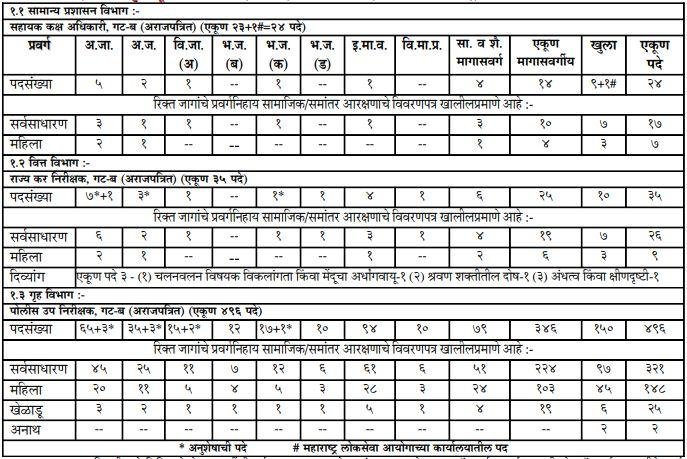 १.१ सामान्य प्रशासन विभाग :-
सहायक कक्ष अधिकारी, गट-ब (अराजपत्रित) (एकूण २३+१#=२४ पदे)
प्रवर्ग अ.जा. अ.ज. वि.जा. (अ) भ.ज. (ब) भ.ज. (क) भ.ज. (ड) इ.मा.व. वि.मा.प्र. सा. व शै. मागासवर्ग एकूण मागासवर्गीय खुला एकूण पदे
पदसंख्या ५ २ १ -- १ -- १ -- ४ १४ ९+१# २४
रिक्त जागांचे प्रवर्गनिहाय सामाजिक/समांतर आरक्षणाचे विवरणपत्र खालीलप्रमाणे आहे :-
सर्वसाधारण ३ १ १ -- १ -- १ -- ३ १० ७ १७
महिला २ १ -- -- -- -- -- -- १ ४ ३ ७
१.२ वित्त विभाग :-
राज्य कर निरीक्षक, गट-ब (अराजपत्रित) (एकूण ३५ पदे)
पदसंख्या ७*+१ ३* १ -- १* १ ४ १ ६ २५ १० ३५
रिक्त जागांचे प्रवर्गनिहाय सामाजिक/समांतर आरक्षणाचे विवरणपत्र खालीलप्रमाणे आहे :-
सर्वसाधारण ६ २ १ -- १ १ ३ १ ४ १९ ७ २६
महिला २ १ -- -- -- -- १ -- २ ६ ३ ९
दिव्यांग एकूण पदे ३ - (१) चलनवलन विषयक विकलांगता किंवा मेंदूचा अर्धांगवायू-१ (२) श्रवण शक्तीतील दोष-१ (३) अंधत्व किंवा क्षीणदृष्टी-१
१.३ गृह विभाग :-
पोलीस उप निरीक्षक, गट-ब (अराजपत्रित) (एकूण ४९६ पदे)
पदसंख्या ६५+३* ३५+३* १५+२* १२ १७+१* १० ९४ १० ७९ ३४६ १५० ४९६
रिक्त जागांचे प्रवर्गनिहाय सामाजिक/समांतर आरक्षणाचे विवरणपत्र खालीलप्रमाणे आहे :-
सर्वसाधारण ४५ २५ ११ ७ १२ ६ ६१ ६ ५१ २२४ ९७ ३२१
महिला २० ११ ५ ४ ५ ३ २८ ३ २४ १०३ ४५ १४८
खेळाडू ३ २ १ १ १ १ ५ १ ४ १९ ६ २५
अनाथ -- -- -- -- -- -- -- -- -- -- २ २
* अनुशेषाची पदे # महाराष्ट्र लोकसेवा आयोगाच्या कार्यालयातील पद